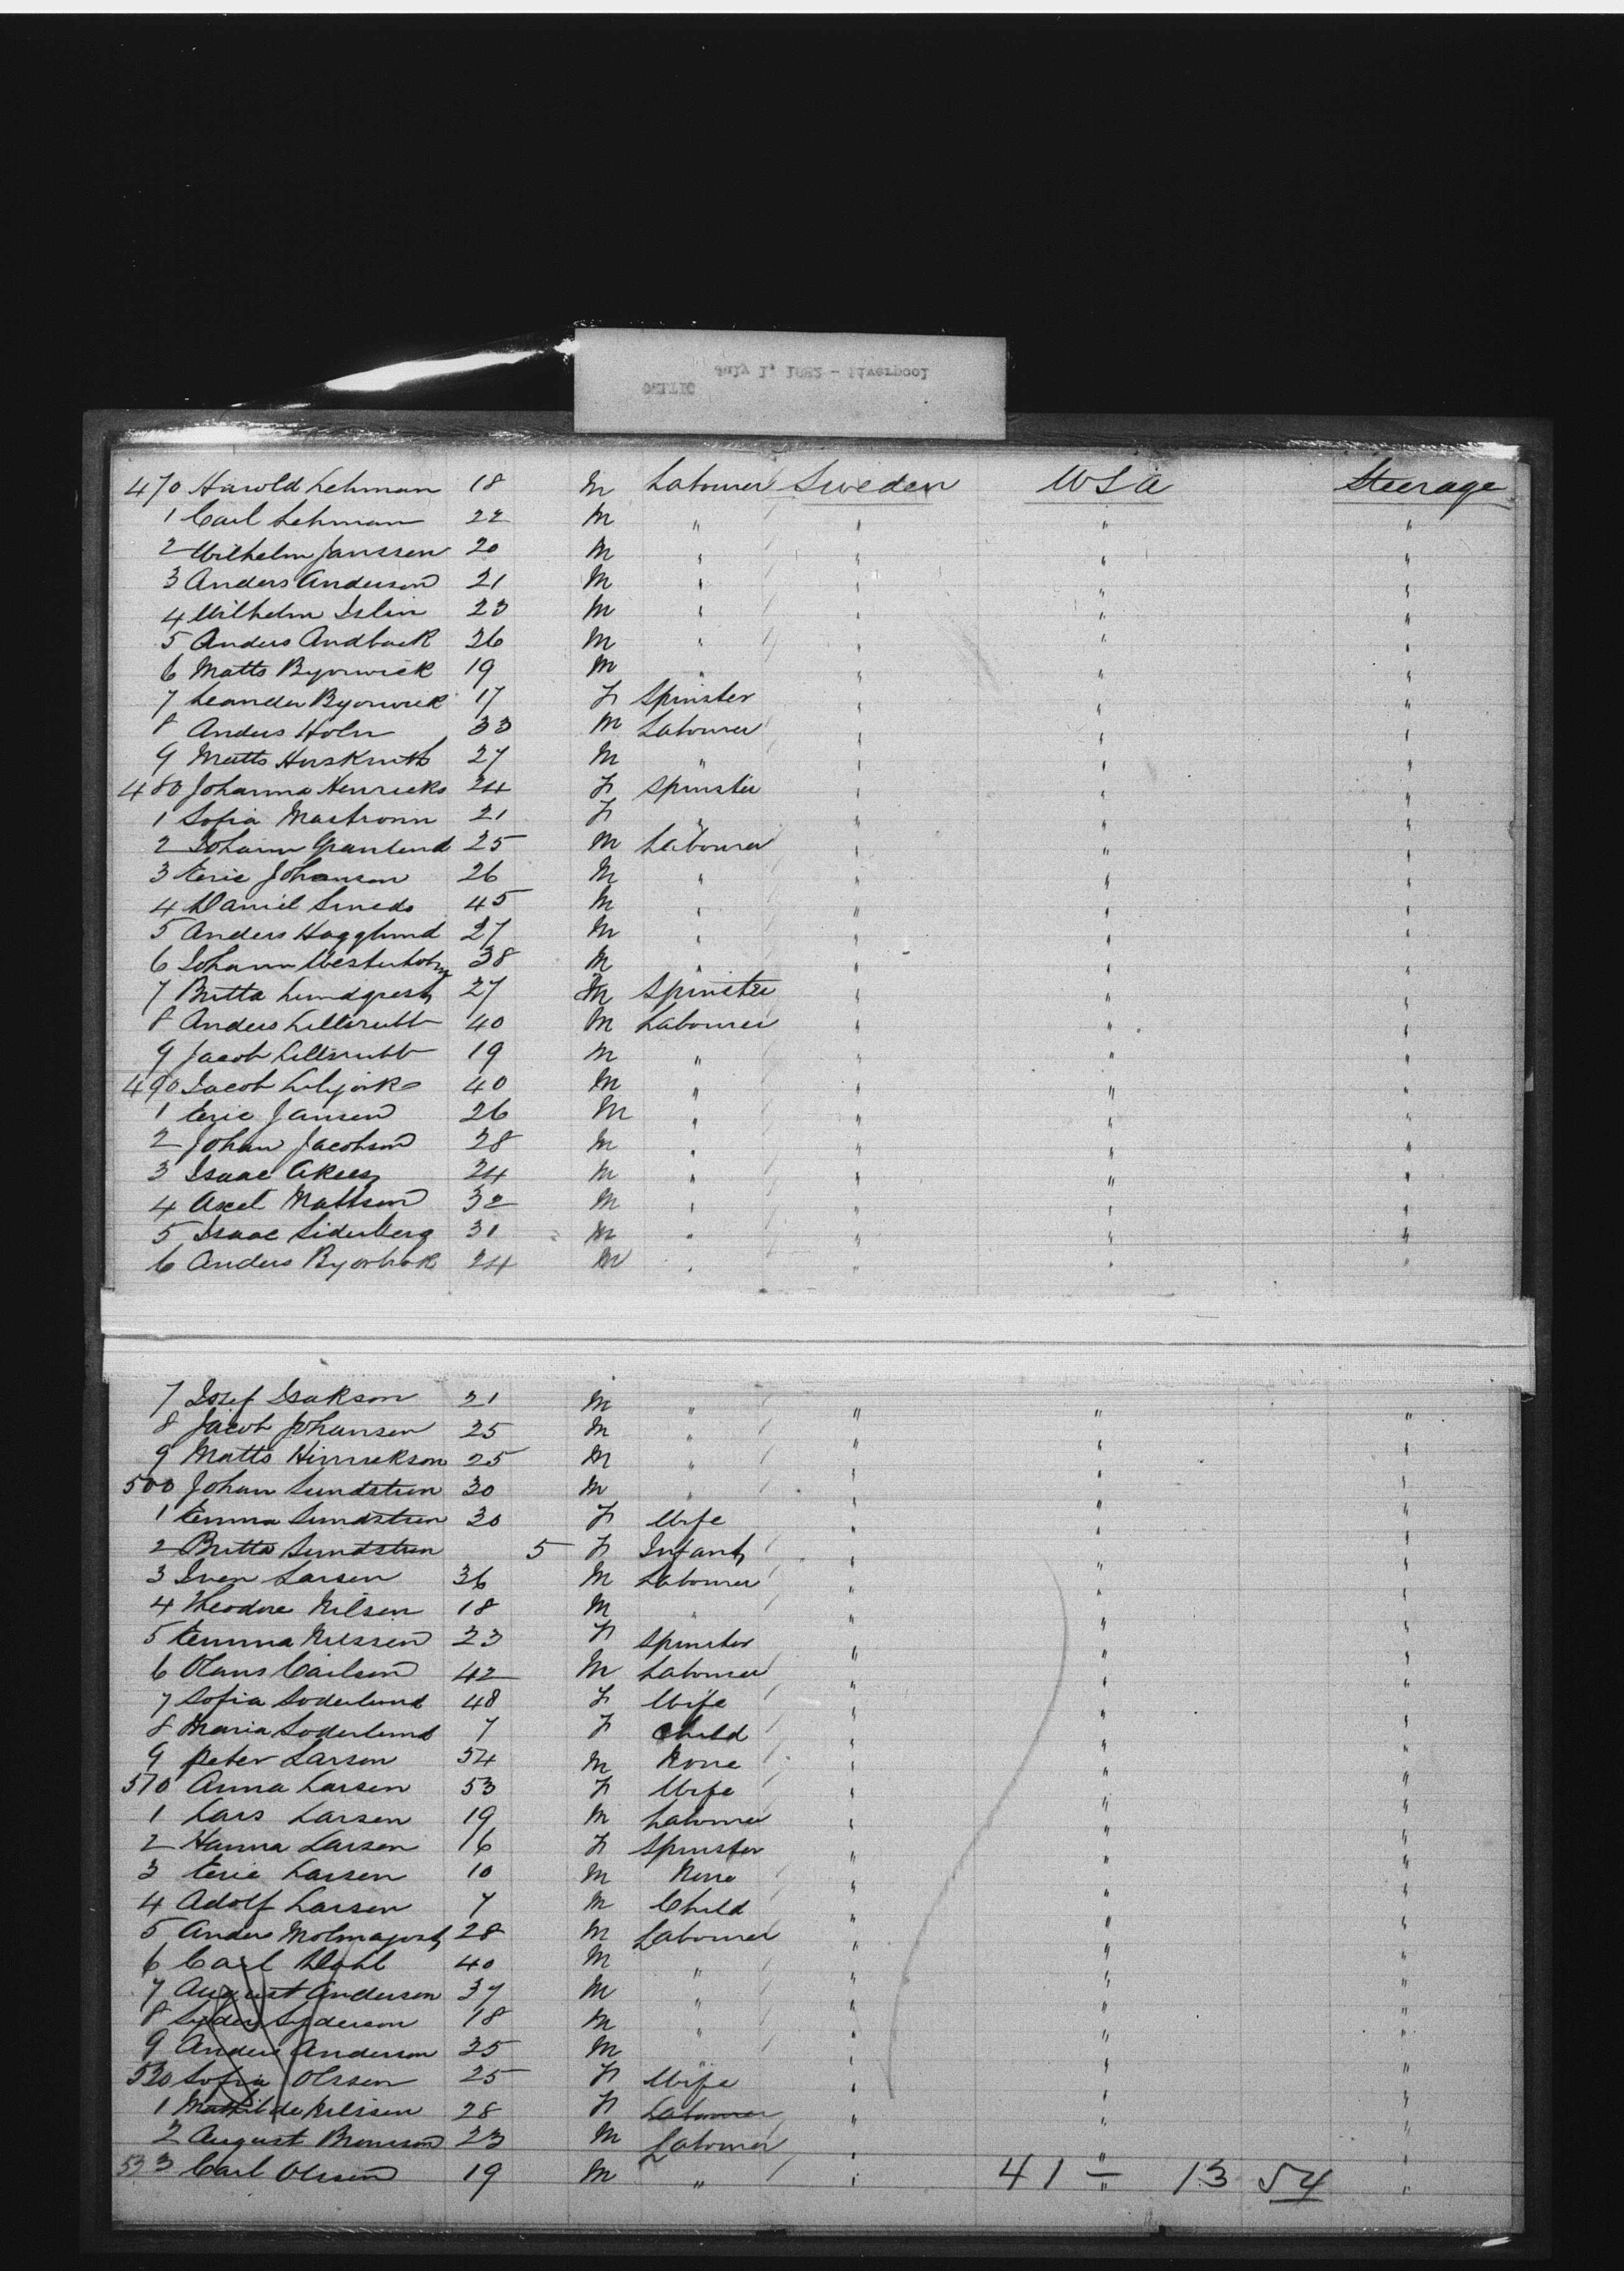 July 1, 1882 - Liverpool
CELTIC
470 Harold Lehman 18 M Labourer Sweden USA Steerage
1 Carl Lehman 22 M " " " "
2 Wilhelm Janssen 20 M " " " "
3 Anders Anderson 21 M " " " "
4 Wilhelm Islin 23 M " " " "
5 Anders Andback 26 M " " " "
6 Matts Byorwick 19 M " " " "
7 Leander Byorwick 17 F Spinster " " "
8 Anders Holm 33 M Labourer " " "
9 Matts 27 M " " " "
480 Johanna Henricks 24 F Spinster " " "
1 Sofia Mastrom 21 F " " " "
2 Johann Granlund 25 M Labourer " " "
3 Eric Johanson 26 M " " " "
4 Daniel Smeds 45 M " " " "
5 Anders Hagglund 27 M " " " "
6 Johann Westerholm 38 M " " " "
7 Britta Lundqvest 27 Spinster " " "
8 Anders Lillsrubb 40 M Labourer " " "
9 Jacob Lillsrubb 19 M " " " "
490 Jacob 40 M " " " "
1 Eric Jansen 26 M " " " "
2 Johan Jacobson 28 M " " " "
3 Isaac 24 M " " " "
4 Axel Mattson 32 M " " " "
5 Isaac Siderberg 31 M " " " "
6 Anders Byorbak 24 M " " " "
7 Josef Isakson 21 M " " " "
8 Jacob Johansen 25 M " " " "
9 Matts Hinrickson 25 M " " " "
500 Johan Sundstren 30 M " " " "
1 Emma Sundstren 30 F Wife " " "
2 Britta Sundstren 5 F Infant " " "
3 Sven Larsen 36 M Labourer " " "
4 Theodore Nilsen 18 M " " " "
5 Emma Nilssen 23 F Spinster " " "
6 Olaus Carlson 42 M Labourer " " "
7 Sofia Soderlund 48 F Wife " " "
8 Maria Soderlund 7 F Child " " "
9 Peter Larsen 54 M None " " "
510 Anna Larsen 53 F Wife " " "
1 Lars Larsen 19 M Labourer " " "
2 Hanna Larsen 16 F Spinster " " "
3 Eric Larsen 10 M None " " "
4 Adolf Larsen 7 M Child " " "
5 Anders 28 M Labourer " " "
6 Carl Dahl 40 M " " " "
7 August Anderson 37 M " " " "
8 18 M " " " "
9 Anders Anderson 25 M " " " "
520 Sofia Olssen 25 F Wife " " "
1 Mathilde Nilssen 28 F Labourer " " "
2 August 23 M Labourer " " "
533 Carl Olssen 19 M " " " "
41 — 13 54